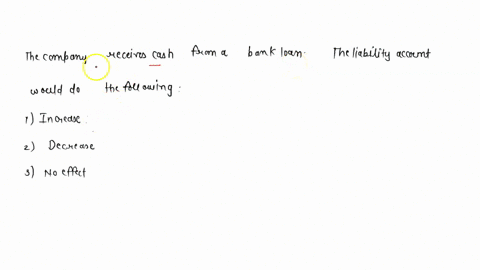 The company receives cash from a bank loan. The liability account
would do the following:
1) Increase:
2) Decrease
3) No effect